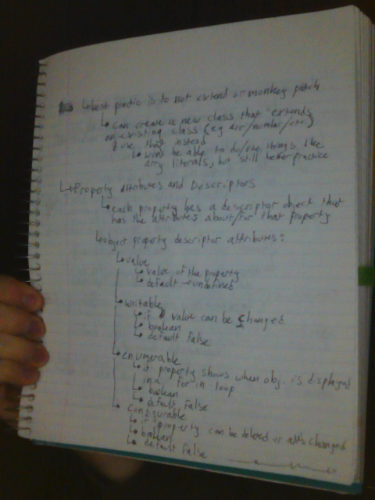 ↳ best practice is to not extend or monkey patch
↳ can create a new class that extends
an existing class (eg arr/number/etc)
& use that instead
↳ won't be able to do/use things like
arry literals, but still better practice
↳ Property Attributes and Descriptors
↳ each property has a descriptor object that
has the attributes about/for that property
↳ object property descriptor attributes:
↳ value
↳ value of the property
↳ default → undefined
↳ writable
↳ if value can be changed
↳ boolean
↳ default false
↳ enumerable
↳ if property shows when obj. is displayed
in a for in loop
↳ boolean
↳ default false
↳ configurable
↳ if property can be deleted or attrs changed
↳ boolean
↳ default false